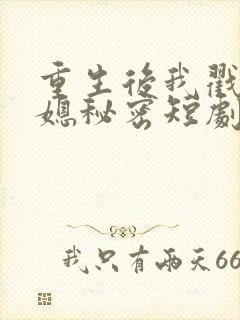 重生后我戳
媳秘密短剧
我只有两天66